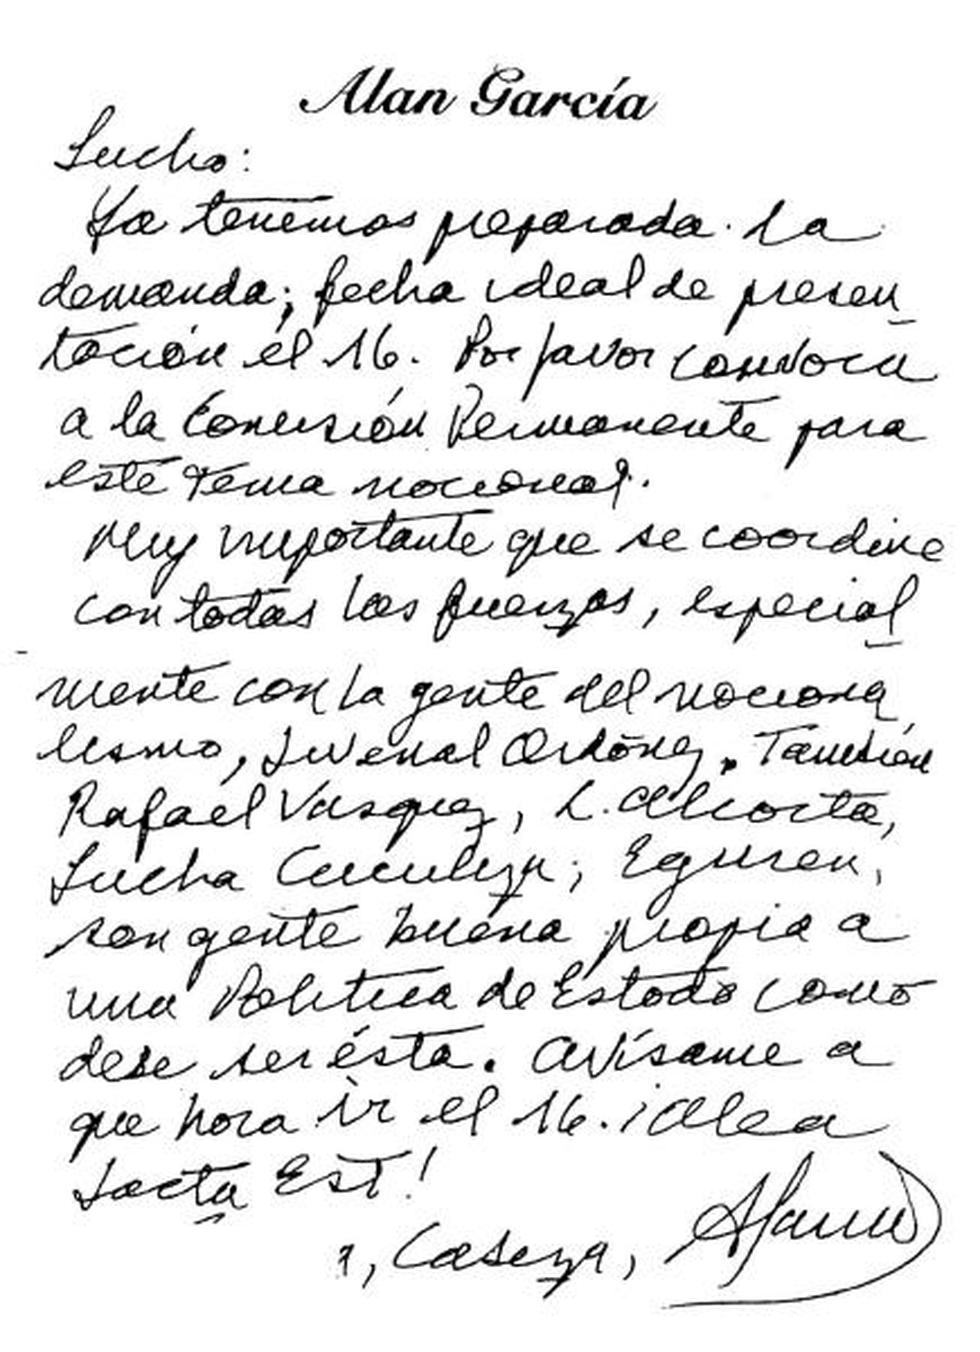 Alan García
Lucho:
Ya tenemos preparada la
demanda; fecha ideal de presen_
tación el 16. Por favor convoca
a la Comisión Permanente para
este tema nacional.
Muy importante que se coordine
con todas las fuerzas, especial_
mente con la gente del naciona
lismo, Juvenal Ordóñez. También
Rafael Vasquez, L. Alcorta,
Lucha Cuculiza; Eguren,
son gente buena propia a
una Política de Estado como
debe ser ésta. Avísame a
que hora ir el 16. ¡Alea
Jacta Est!